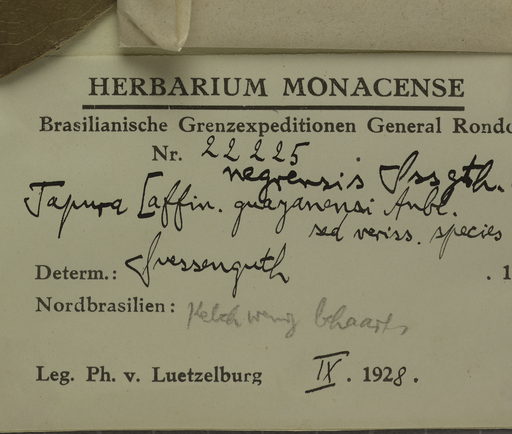 HERBARIUM MONACENSE
Brasilianische Grenzexpeditionen General Rondo
Nr. 22225
negrensis Sssgth.
Tapura [affin. guayanensi Aubl.
sed veriss. species
Determ.: Suessenguth . 1
Nordbrasilien: Kelch wenig behaart
Leg. Ph. v. Luetzelburg IX. 1928.